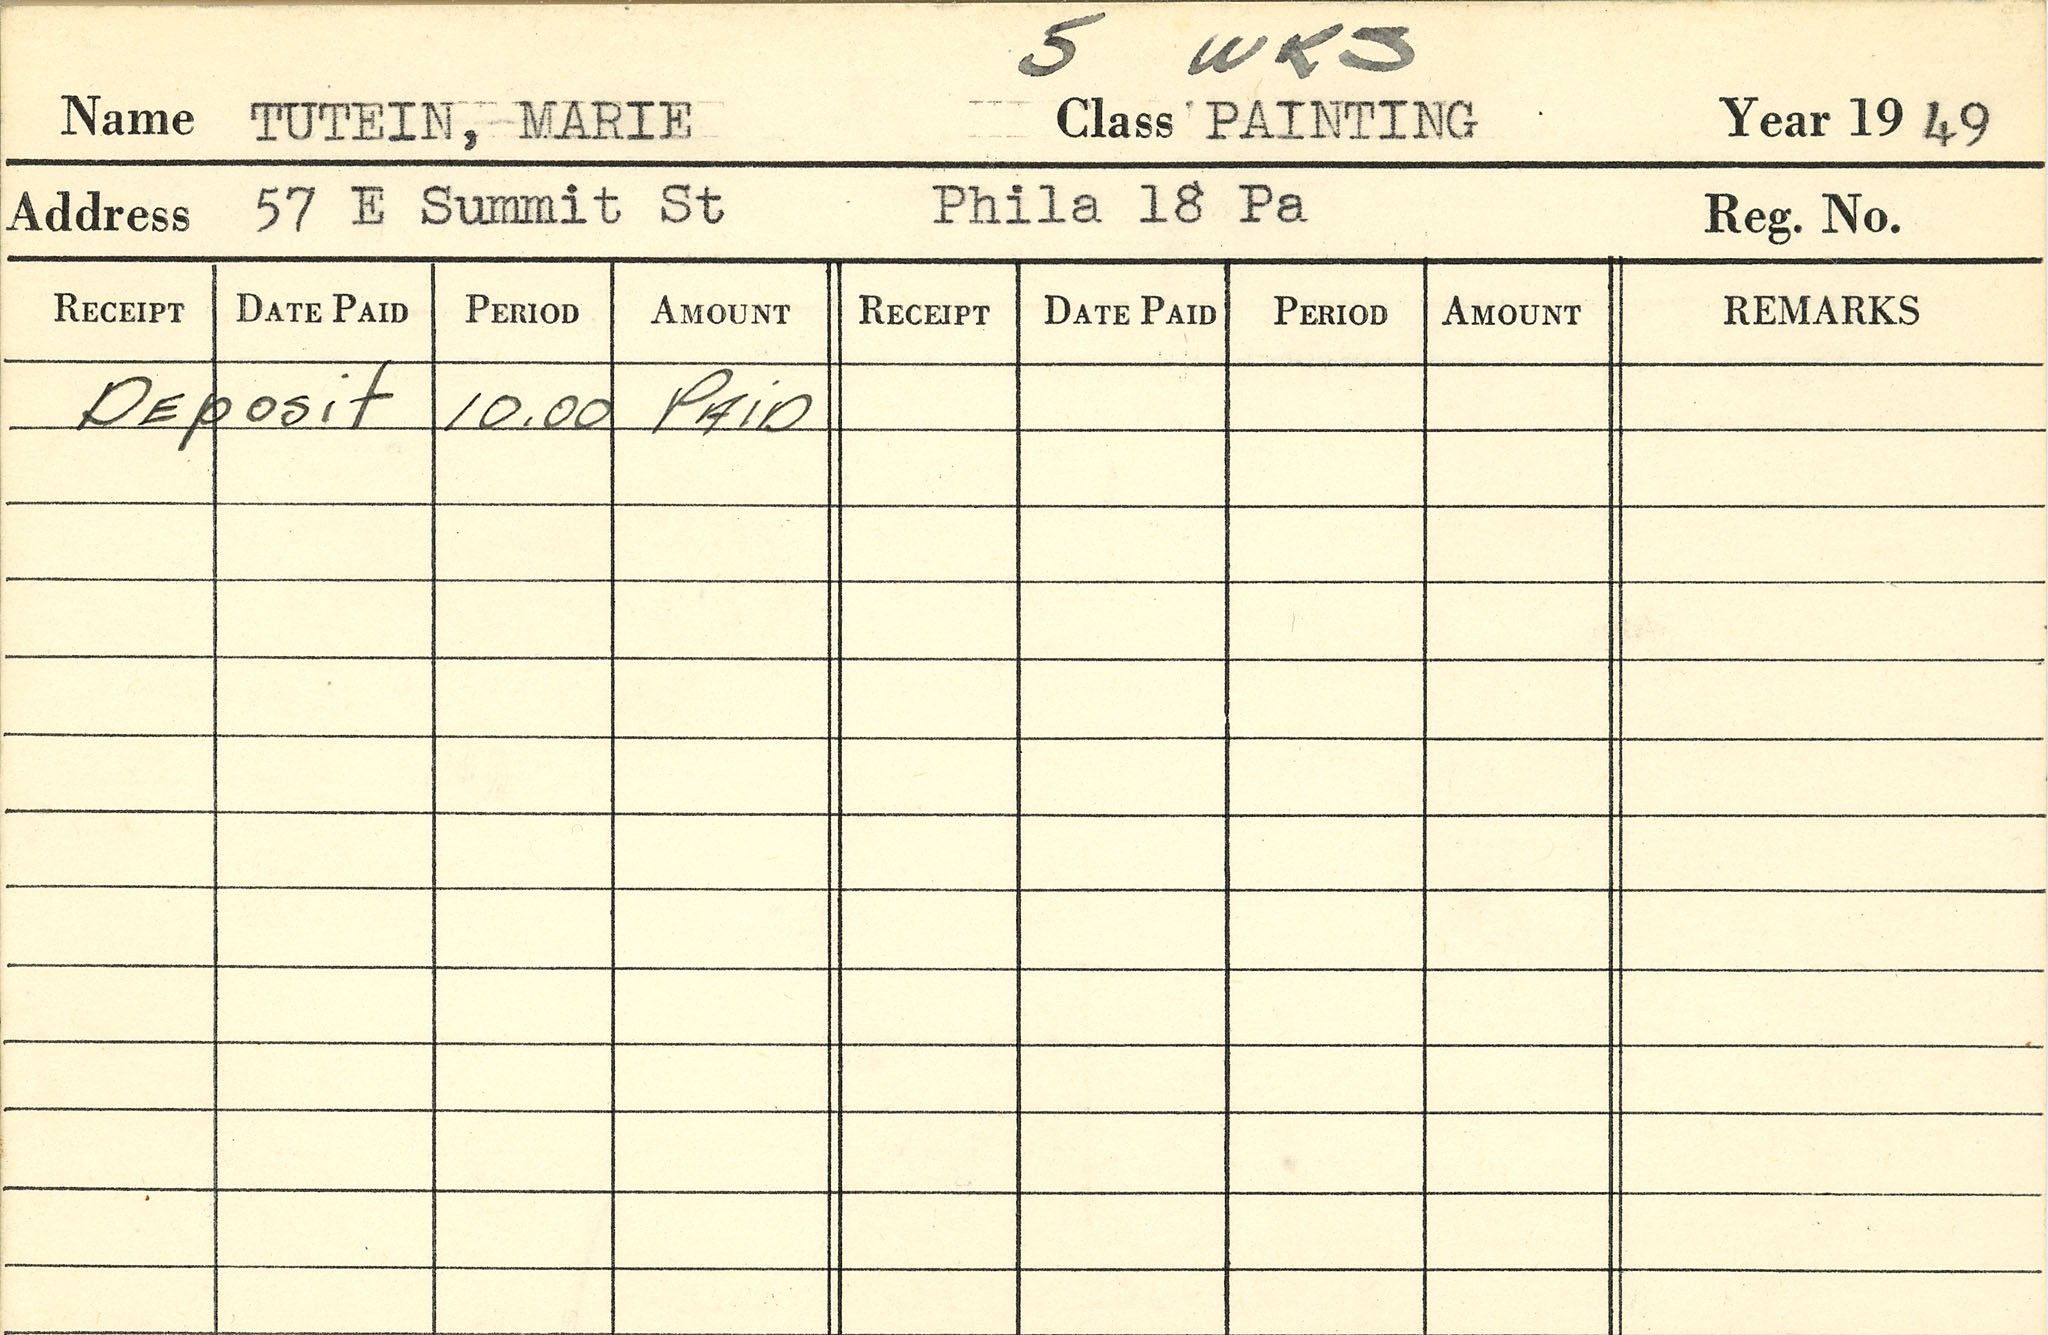 5 WKS
Name TUTEIN, MARIE Class PAINTING Year 19 49
Address 57 E Summit St Phila 18 Pa Reg. No.
RECEIPT DATE PAID PERIOD AMOUNT RECEIPT DATE PAID PERIOD AMOUNT REMARKS
Deposit 10.00 PAID